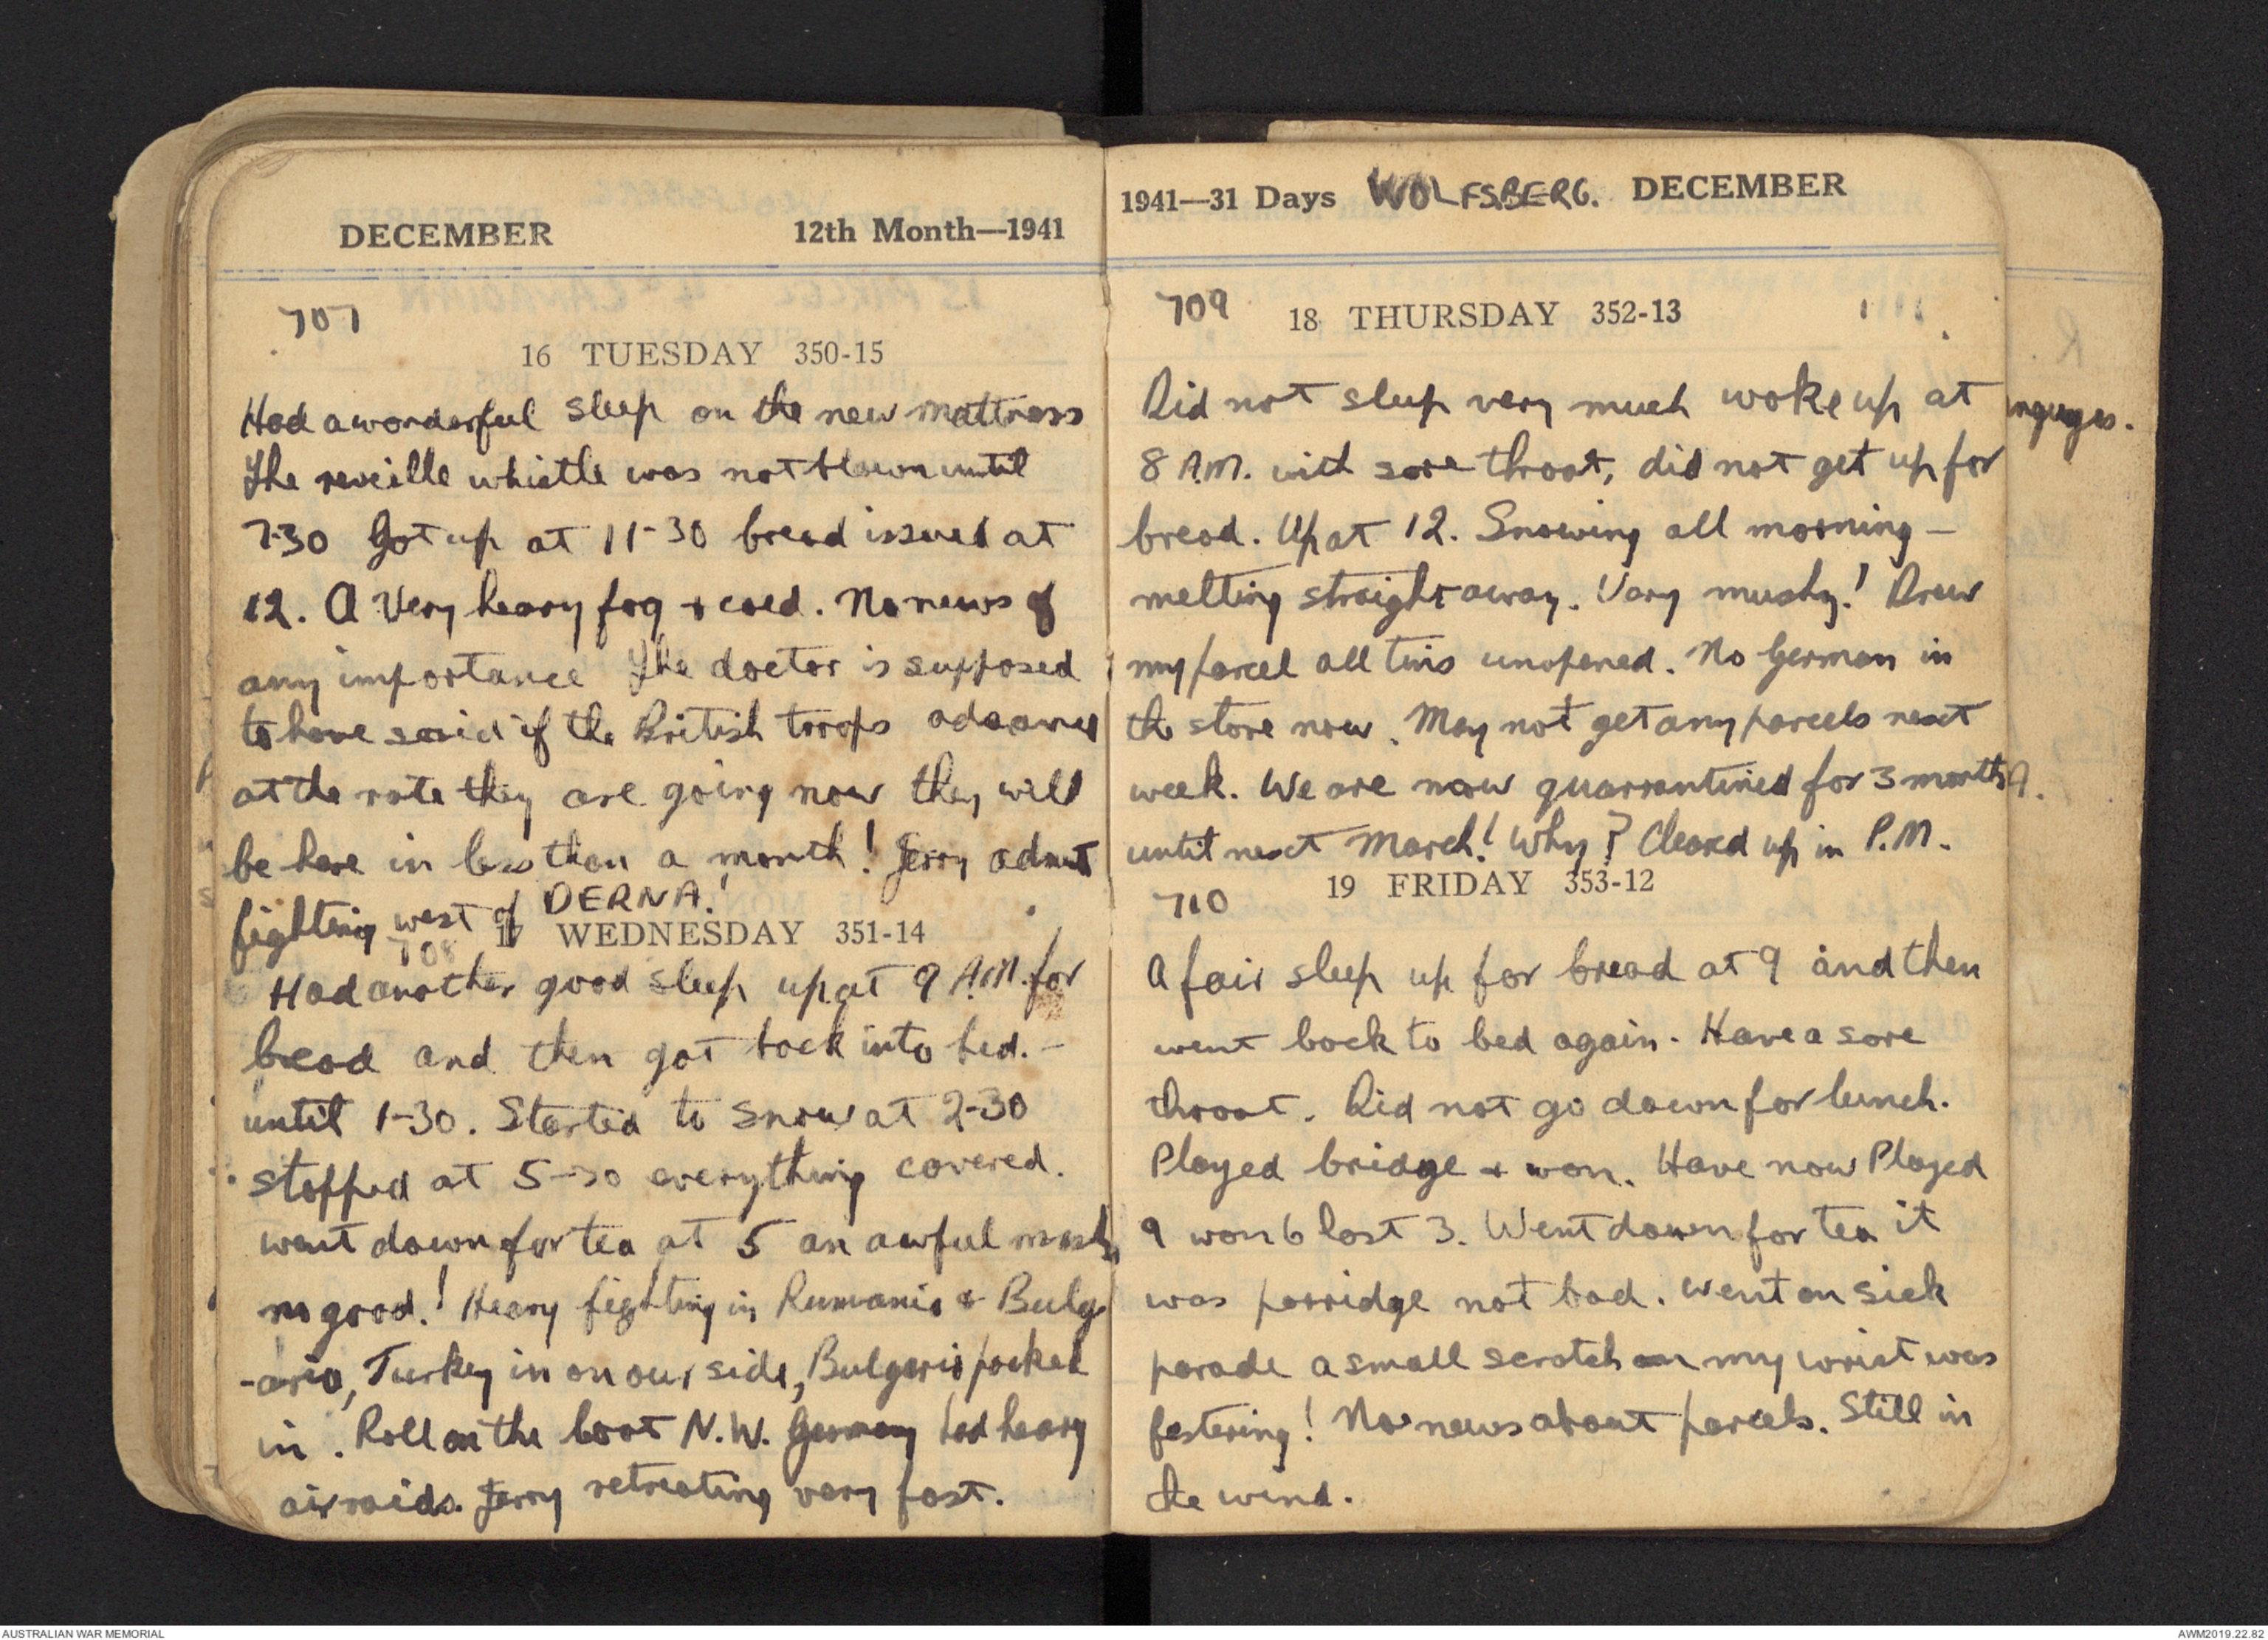 DECEMBER 12th Month—1941
707
16 TUESDAY 350-15
Had a wonderful sleep on the new mattress
The reveille whistle was not blown until
7-30 Got up at 11-30 bread issued at
12. A Very heavy fog & cold. No news of
any importance The doctor is supposed
to have said if the British troops advance
at the rate they are going now they will
be here in less than a month! Jerry admit
fighting west of DERNA!
708 17 WEDNESDAY 351-14
Had another good sleep up at 9 A.M. for
bread and then got back into bed. -
until 1-30. Started to snow at 2-30
stopped at 5-30 everything covered.
went down for tea at 5 an awful mush
no good! Heavy fighting in Rumania & Bulg
-aria, Turkey in on our side, Bulgaria packed
in. Roll on the boat N.W. Germany had heavy
air raids. Jerry retreating very fast.
1941—31 Days WOLFSBERG. DECEMBER
709
18 THURSDAY 352-13
Did not sleep very much woke up at
8 A.M. with sore throat, did not get up for
bread. Up at 12. Snowing all morning -
melting straight away. Very mushy! Drew
my parcel all tins unopened. No German in
the store now. May not get any parcels next
week. We are now quarrantined for 3 months
until next March! Why? Cleared up in P.M.
19 FRIDAY 353-12
710
A fair sleep up for bread at 9 and then
went back to bed again. Have a sore
throat. Did not go down for lunch.
Played bridge & won. Have now Played
9 won 6 lost 3. Went down for tea it
was porridge not bad. Went on sick
parade a small scratch on my wrist was
festering! No news about parcels. Still in
the wind.
AUSTRALIAN WAR MEMORIAL
AWM2019.22.82